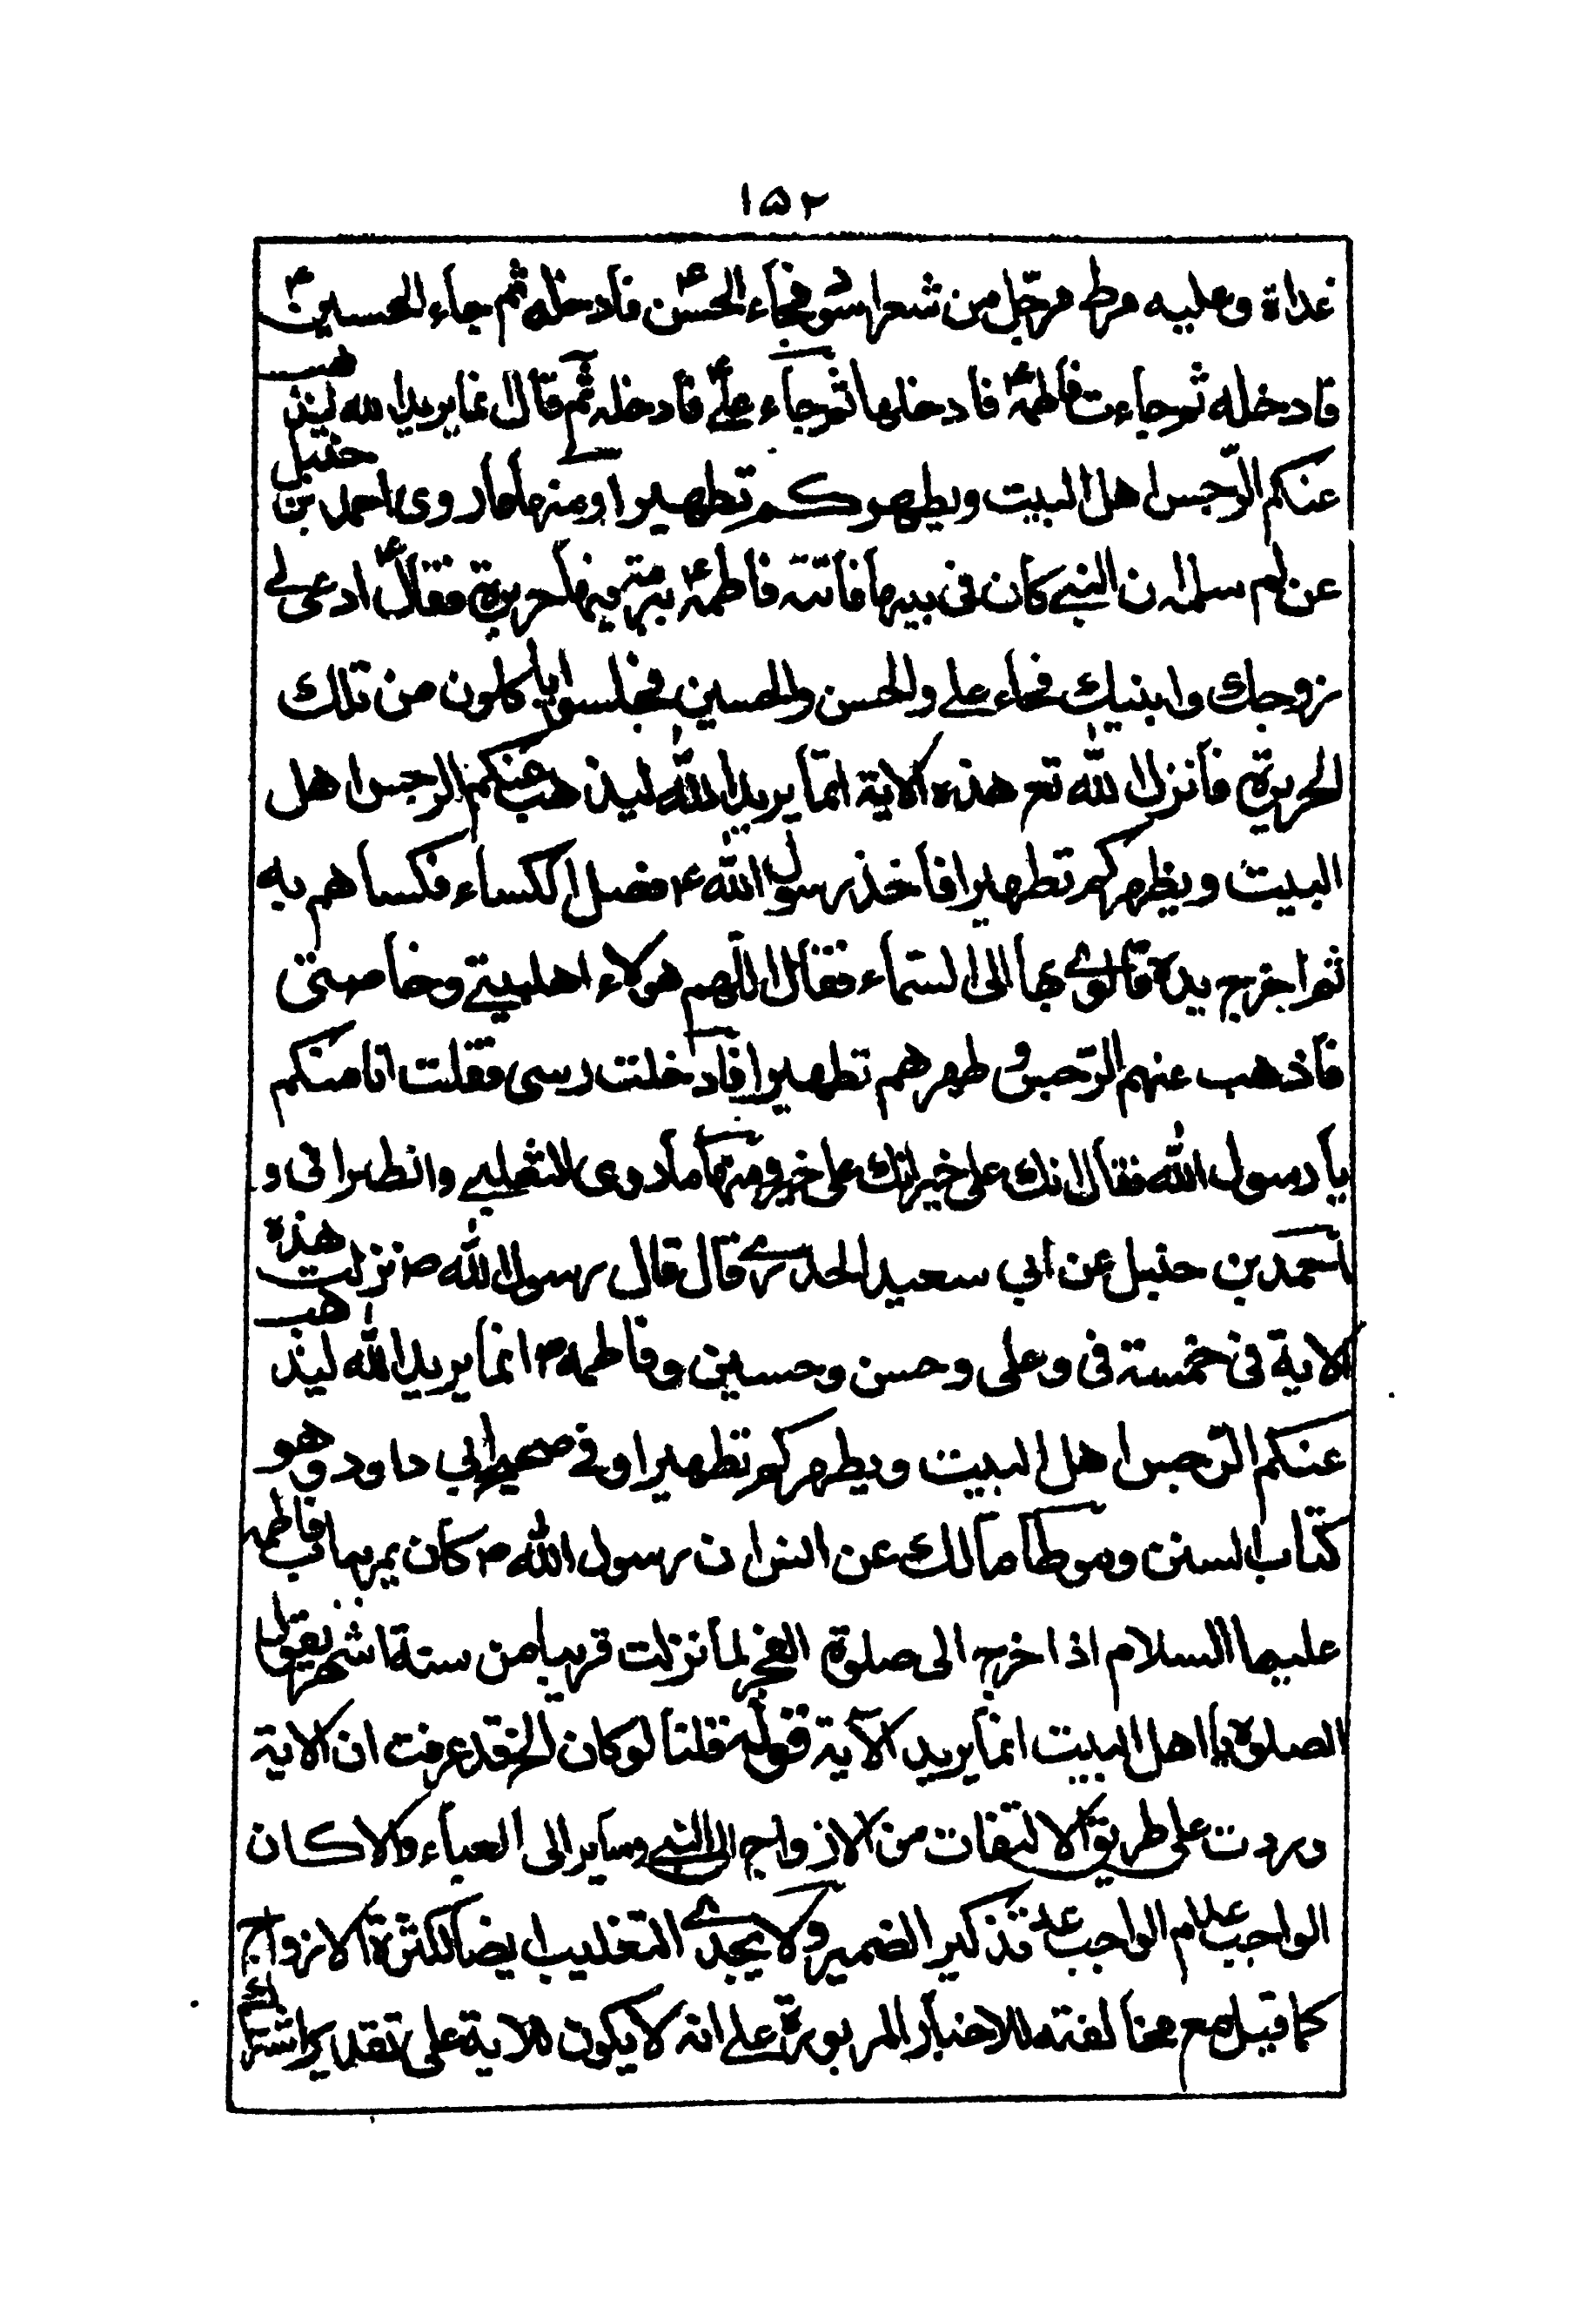 ١٥٢
غداة وعليه مرط مرجّل من شعر اسود فجاء الحسن ع فادخله ثم جاء الحسين ع
فادخله ثم جاءت فاطمة ع فادخلها ثم جاء علی ع فادخله ثم قال انما يريد الله ليذهب
عنكم الرّجس اهل البيت ويطهركم تطهيرا ومنها ما روى احمد بن حنبل
عن ام سلمه ان النبی كان فی بيتها فاتته فاطمة ع ببرمة فيها حريرة فقال ادعی لی
زوجك وابنيك فجاء علی والحسن والحسين فجلسوا ياكلون من تلك
الحريرة فانزل الله تع هذه الاية انّما يريد الله ليذهب عنكم الرجس اهل
البيت ويطهركم تطهيرا فاخذ رسول الله ع فضل الكساء فكساهم به
ثم اخرج يده فالوى بها الى السّماء فقال اللّهم هولاء اهلبيتی وخاصتی
فاذهب عنهم الرّجس و طهرهم تطهيرا فادخلت رسی فقلت انا منكم
يا رسول الله فقال انك علی خير انك علی خير ومنها ما روى الثعلبی والطبرانی و
احمد بن حنبل عن ابی سعيد الخدری قال قال رسول الله ص نزلت هذه
الاية فی خمسة فی وعلی وحسن وحسين وفاطمة انما يريد الله ليذهب
عنكم الرّجس اهل البيت ويطهركم تطهيرا وفی صحيح ابی داود وهو
كتاب السنن وموطا مالك عن انس ان رسول الله ص كان يمر بباب فاطمه
عليها السلام اذا خرج الى صلوة الفجر لما نزلت قريبا من ستة اشهر يقول
الصلوة يا اهل البيت انما يريد الآية قوله قلنا لو كان الخ قد عرفت ان الاية
وردت علی طريق الالتفات من الازواج الى النبی وساير الى العباء والا كان
الواجب علام الواجب عله تذكير الضمير ولا يجدی التغليب ايضا لكثرة الازواج
كما قيل مع مخالفته للاخبار المربورة علی انه لا يكون للاية علی تقدير اشتراك